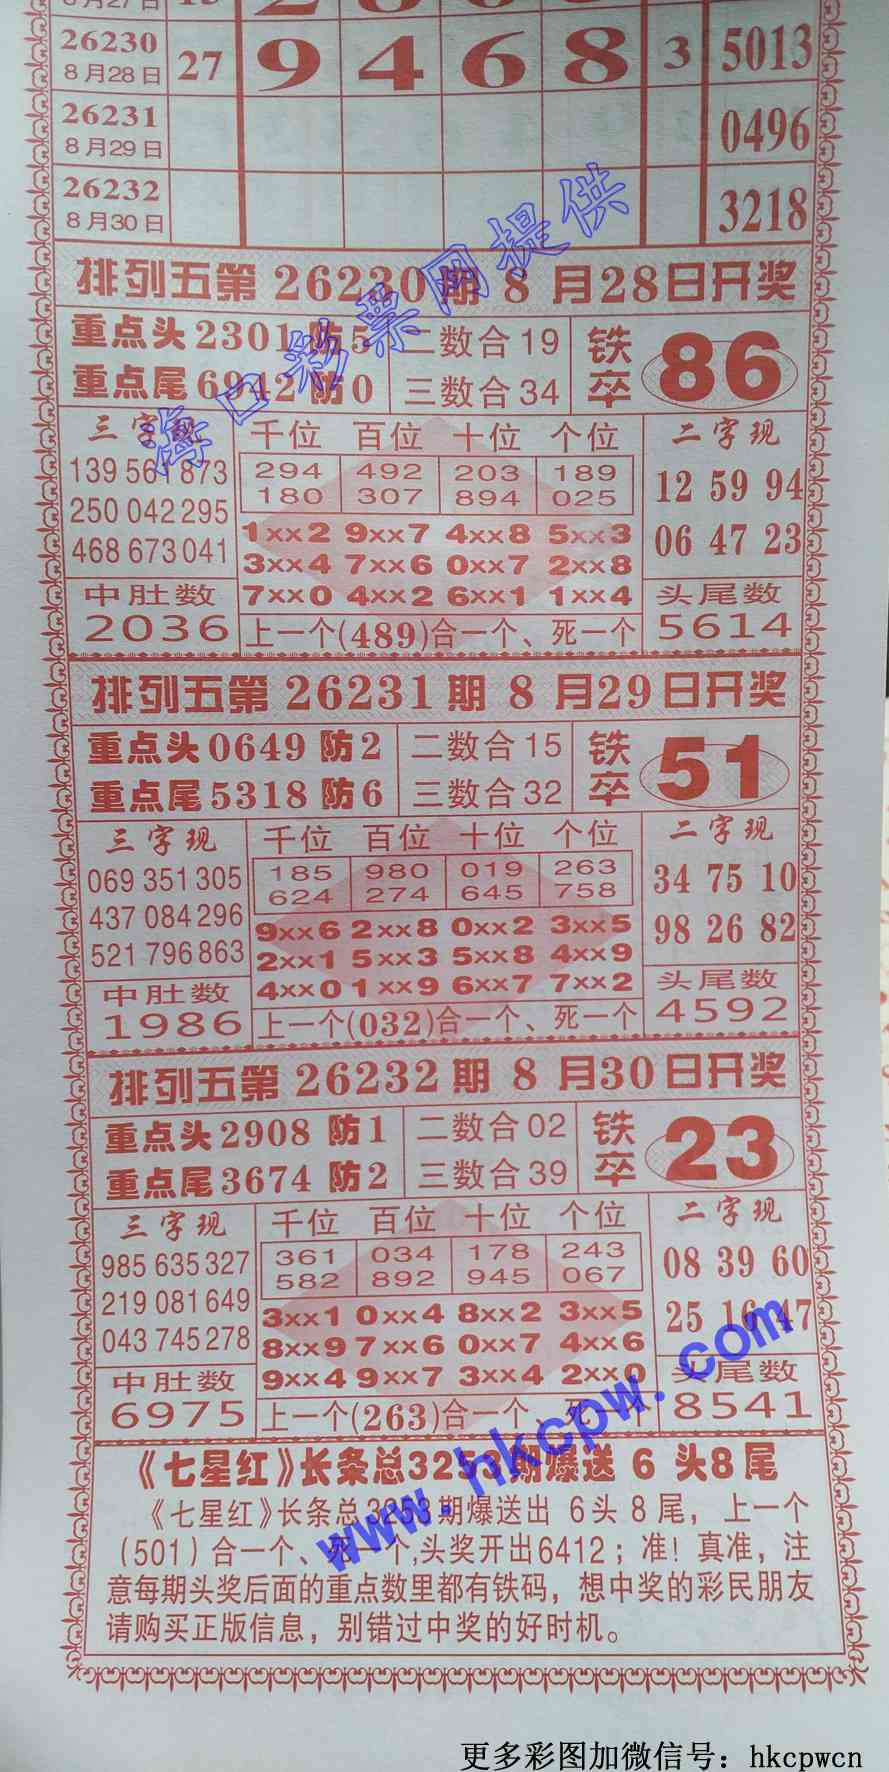 8月27日
26230 27 9 4 6 8 3 5013
8月28日
26231 0496
8月29日
26232 3218
8月30日
海口彩票网提供
排列五第26230期8月28日开奖
重点头2301防5 二数合19 铁卒 86
重点尾6942防0 三数合34
三字现 千位 百位 十位 个位 二字现
139 561 873 294 492 203 189 12 59 94
250 042 295 180 307 894 025 06 47 23
468 673 041 1xx2 9xx7 4xx8 5xx3
3xx4 7xx6 0xx7 2xx8
中肚数 7xx0 4xx2 6xx1 1xx4 头尾数
2036 上一个(489)合一个、死一个 5614
排列五第26231期8月29日开奖
重点头0649防2 二数合15 铁卒 51
重点尾5318防6 三数合32
三字现 千位 百位 十位 个位 二字现
069 351 305 185 980 019 263 34 75 10
437 084 296 624 274 645 758 98 26 82
521 796 863 9xx6 2xx8 0xx2 3xx5
2xx1 5xx3 5xx8 4xx9
中肚数 4xx0 1xx9 6xx7 7xx2 头尾数
1986 上一个(032)合一个、死一个 4592
排列五第26232期8月30日开奖
重点头2908防1 二数合02 铁卒 23
重点尾3674防2 三数合39
三字现 千位 百位 十位 个位 二字现
985 635 327 361 034 178 243 08 39 60
219 081 649 582 892 945 067 25 16 47
043 745 278 3xx1 0xx4 8xx2 3xx5
8xx9 7xx6 0xx7 4xx6
中肚数 9xx4 9xx7 3xx4 2xx0 头尾数
6975 上一个(263)合一个、死一个 8541
www.hkcpw.com
《七星红》长条总3253期爆送6头8尾
《七星红》长条总3253期爆送出6头8尾，上一个
(501)合一个、死一个,头奖开出6412；准！真准，注
意每期头奖后面的重点数里都有铁码，想中奖的彩民朋友
请购买正版信息，别错过中奖的好时机。
更多彩图加微信号：hkcpwcn